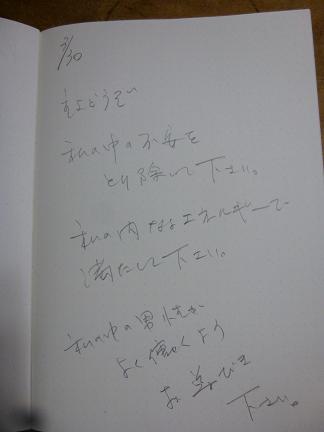 3/30
私の中の不安を
とり除いて下さい。
私の内なるエネルギーで
満たして下さい。
私の中の男性が
よく働くよう
お導びき
下さい。